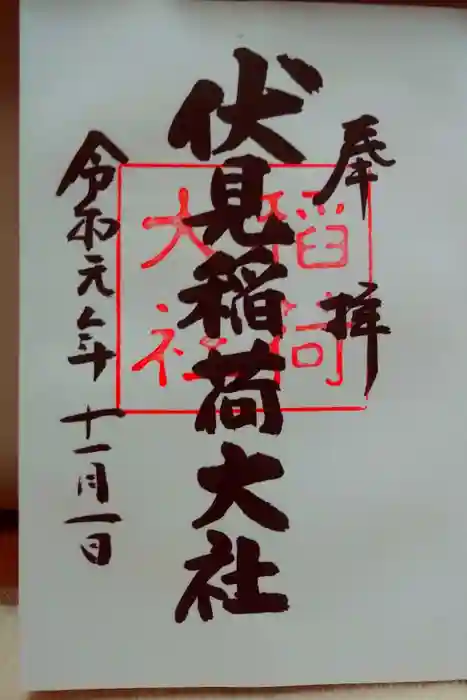 奉拝
伏見稲荷大社
稲荷
大社
令和元年十一月一日